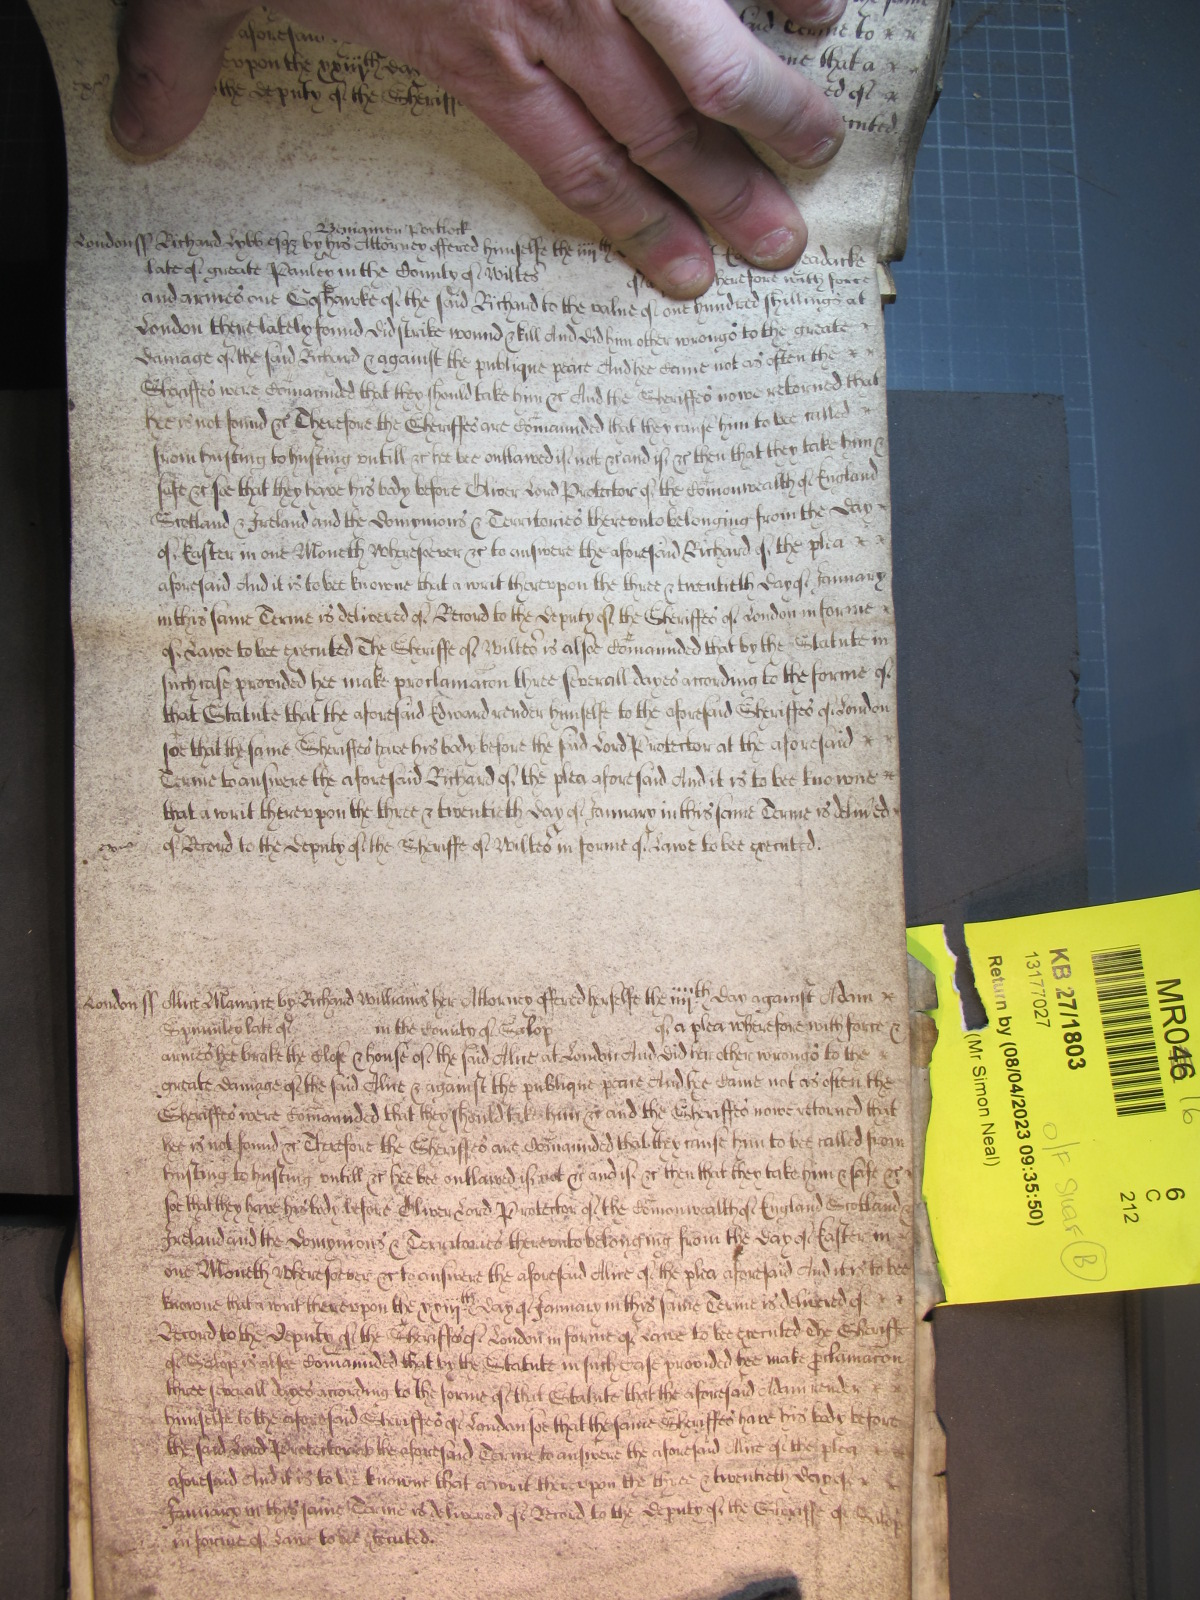 the same
aforesaid said Terme to
upon the xxiijth day one that a
to the deputy of the Sheriffe ed of
ented.
Beniamyn Portlock
London ss Richard Lybb esqr by his Attorney offered himselfe the iiijth
late of greate in the County of Wiltes wherefore with force
and armes one Goshawke of the said Richard to the value of one hundred shillings at
London there lately found did strike wound & kill And did him other wrongs to the greate
damage of the said Richard & against the publique peace And hee came not as often the
Sheriffes were comaunded that they should take him &c And the Sheriffes nowe retorned that
hee is not found &c Therefore the Sheriffes are comaunded that they cause him to bee called
from husting to husting vntill &c hee bee outlawed if not &c and if &c then that they take him &
safe &c soe that they have his body before Oliver Lord Protector of the Comonwealth of England
Scotland & Ireland and the Domynions & Territories therevnto belonging from the day
of Easter in one Moneth wheresoever &c to answere the aforesaid Richard of the plea
aforesaid And it is to bee knowne that a writ therevpon the three & twentieth day of January
in this same Terme is delivered of Record to the deputy of the Sheriffes of London in forme
of Lawe to bee executed The Sheriffe of Wiltes is alsoe comaunded that by the Statute in
such case provided hee make proclamacon three severall dayes according to the forme of
that Statute that the aforesaid Edward render himselfe to the aforesaid Sheriffes of London
soe that the same Sheriffes have his body before the said Lord Protector at the aforesaid
Terme to answere the aforesaid Richard of the plea aforesaid And it is to bee knowne
that a writ therevpon the three & twentieth day of January in this same Terme is delivred
of Record to the deputy of the Sheriffe of Wiltes in forme of Lawe to bee executed.
London ss Alice Maurice by Richard Williams her Attorney offered herselfe the iiijth day against Adam
late of in the County of Salop of a plea wherefore with force &
armes hee brake the Close & house of the said Alice at London And did her other wrongs to the
greate damage of the said Alice & against the publique peace And hee came not as often the
Sheriffes were comaunded that they should take him &c and the Sheriffes nowe retorned that
hee is not found &c Therefore the Sheriffes are comaunded that they cause him to bee called from
husting to husting vntill &c hee bee outlawed if not &c and if &c then that they take him & safe &c
soe that they have his body before Oliver Lord Protector of the Comonwealth of England Scotland &
Ireland and the Domynions & Territories therevnto belonging from the day of Easter in
one Moneth wheresoever &c to answere the aforesaid Alice of the plea aforesaid And it is to bee
knowne that a writ therevpon the xxiijth day of January in this same Terme is delivered of
Record to the deputy of the Sheriffes of London in forme of Lawe to bee executed The Sheriffe
of Salop is alsoe comaunded that by the Statute in such case provided hee make pclamacon
three severall dayes according to the forme of that Statute that the aforesaid Adam render
himselfe to the aforesaid Sheriffes of London soe that the same Sheriffes have his body before
the said Lord Protector at the aforesaid Terme to answere the aforesaid Alice of the plea
aforesaid And it is to bee knowne that a writ therevpon the three & twentieth day of
January in this same Terme is delivered of Record to the deputy of the Sheriffe of Salop
in forme of Lawe to bee executed.
MR046
16
KB 27/1803
13177027
Return by (08/04/2023 09:35:50)
(Mr Simon Neal)
6
C
212
O/F
B